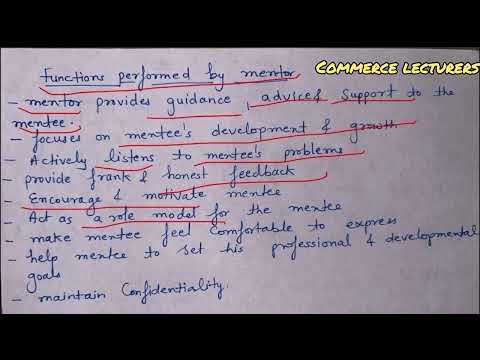 Commerce lecturers
Functions performed by mentor
- mentor provides guidance, advice & support to the
mentee.
- focuses on mentee's development & growth
- Actively listens to mentee's problems
- provide frank & honest feedback
- Encourage & motivate mentee
- Act as a role model for the mentee
- make mentee feel comfortable to express
- help mentee to set his professional & developmental
goals
- maintain Confidentiality.